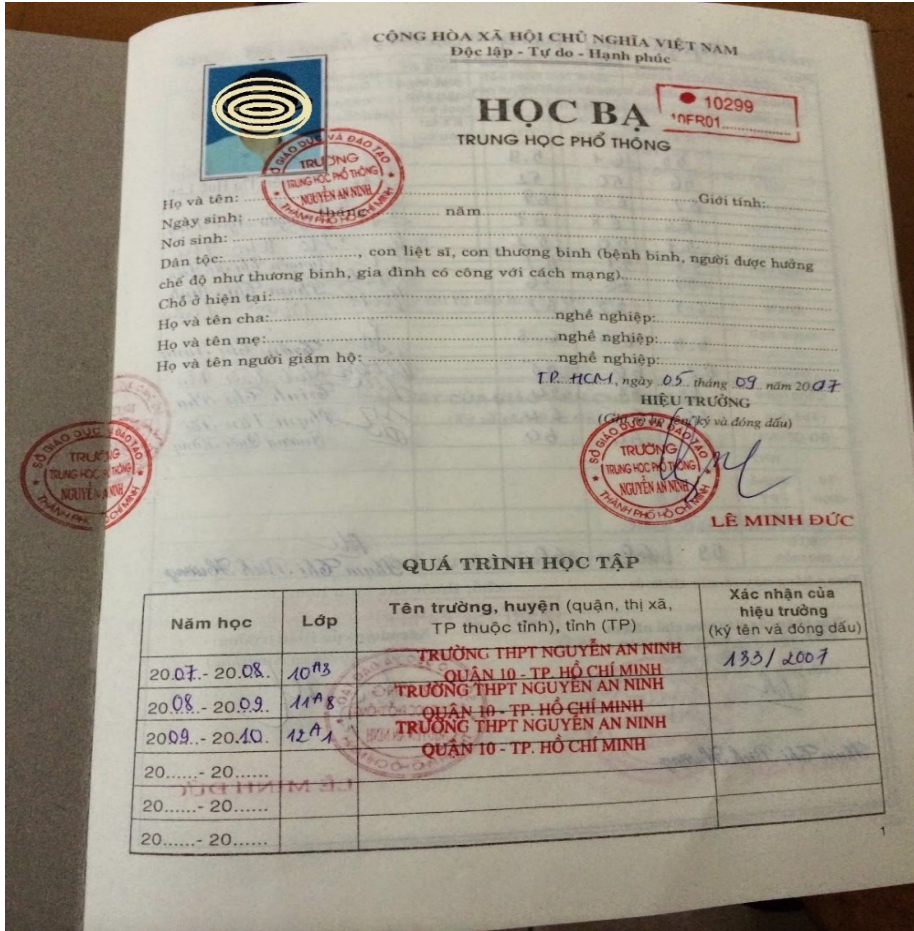 CỘNG HÒA XÃ HỘI CHỦ NGHĨA VIỆT NAM
Độc lập - Tự do - Hạnh phúc
HỌC BẠ
10299
10FR01
TRUNG HỌC PHỔ THÔNG
SỞ GIÁO DỤC VÀ ĐÀO TẠO
TRƯỜNG
TRUNG HỌC PHỔ THÔNG
NGUYỄN AN NINH
THÀNH PHỐ HỒ CHÍ MINH
Họ và tên: Giới tính:
Ngày sinh: tháng năm
Nơi sinh:
Dân tộc:, con liệt sĩ, con thương binh (bệnh binh, người được hưởng
chế độ như thương binh, gia đình có công với cách mạng)
Chỗ ở hiện tại:
Họ và tên cha: nghề nghiệp:
Họ và tên mẹ: nghề nghiệp:
Họ và tên người giám hộ: nghề nghiệp:
T.P. HCM, ngày 05 tháng 09 năm 2007
HIỆU TRƯỞNG
ký và đóng dấu)
SỞ GIÁO DỤC VÀ ĐÀO TẠO
TRƯỜNG
TRUNG HỌC PHỔ THÔNG
NGUYỄN AN NINH
THÀNH PHỐ HỒ CHÍ MINH
SỞ GIÁO DỤC VÀ ĐÀO TẠO
TRƯỜNG
TRUNG HỌC PHỔ THÔNG
NGUYỄN AN NINH
THÀNH PHỐ HỒ CHÍ MINH
LÊ MINH ĐỨC
QUÁ TRÌNH HỌC TẬP
Năm học Lớp Tên trường, huyện (quận, thị xã, TP thuộc tỉnh), tỉnh (TP) Xác nhận của hiệu trưởng (ký tên và đóng dấu)
2007.- 2008. 10A3 TRƯỜNG THPT NGUYỄN AN NINH 133/2007
QUẬN 10 - TP. HỒ CHÍ MINH
2008.- 2009. 11A8 TRƯỜNG THPT NGUYỄN AN NINH
QUẬN 10 - TP. HỒ CHÍ MINH
2009.- 2010. 12A1 TRƯỜNG THPT NGUYỄN AN NINH
QUẬN 10 - TP. HỒ CHÍ MINH
20......- 20......
20......- 20......
20......- 20......
1